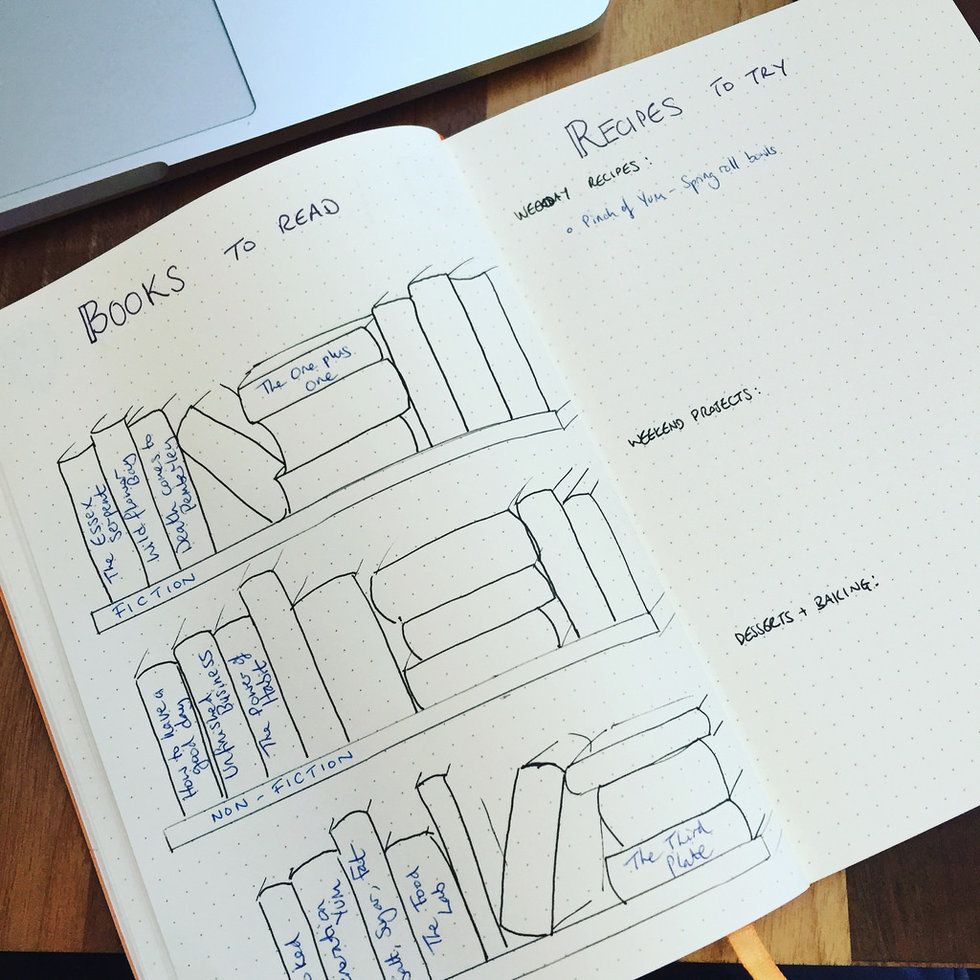 BOOKS TO READ
The Essex
Serpent
Wild Flower
Boy
Death comes to
Pemberley
The One plus
One
FICTION
How to have a
good day
Unfinished
Business
The Power of
Habit
NON-FICTION
Yum
Salt, Sugar, Fat
The Food
Lab
The Third
Plate
RECIPES TO TRY
WEEKDAY RECIPES:
Pinch of Yum - Spring roll bowls
WEEKEND PROJECTS:
DESSERTS + BAKING: